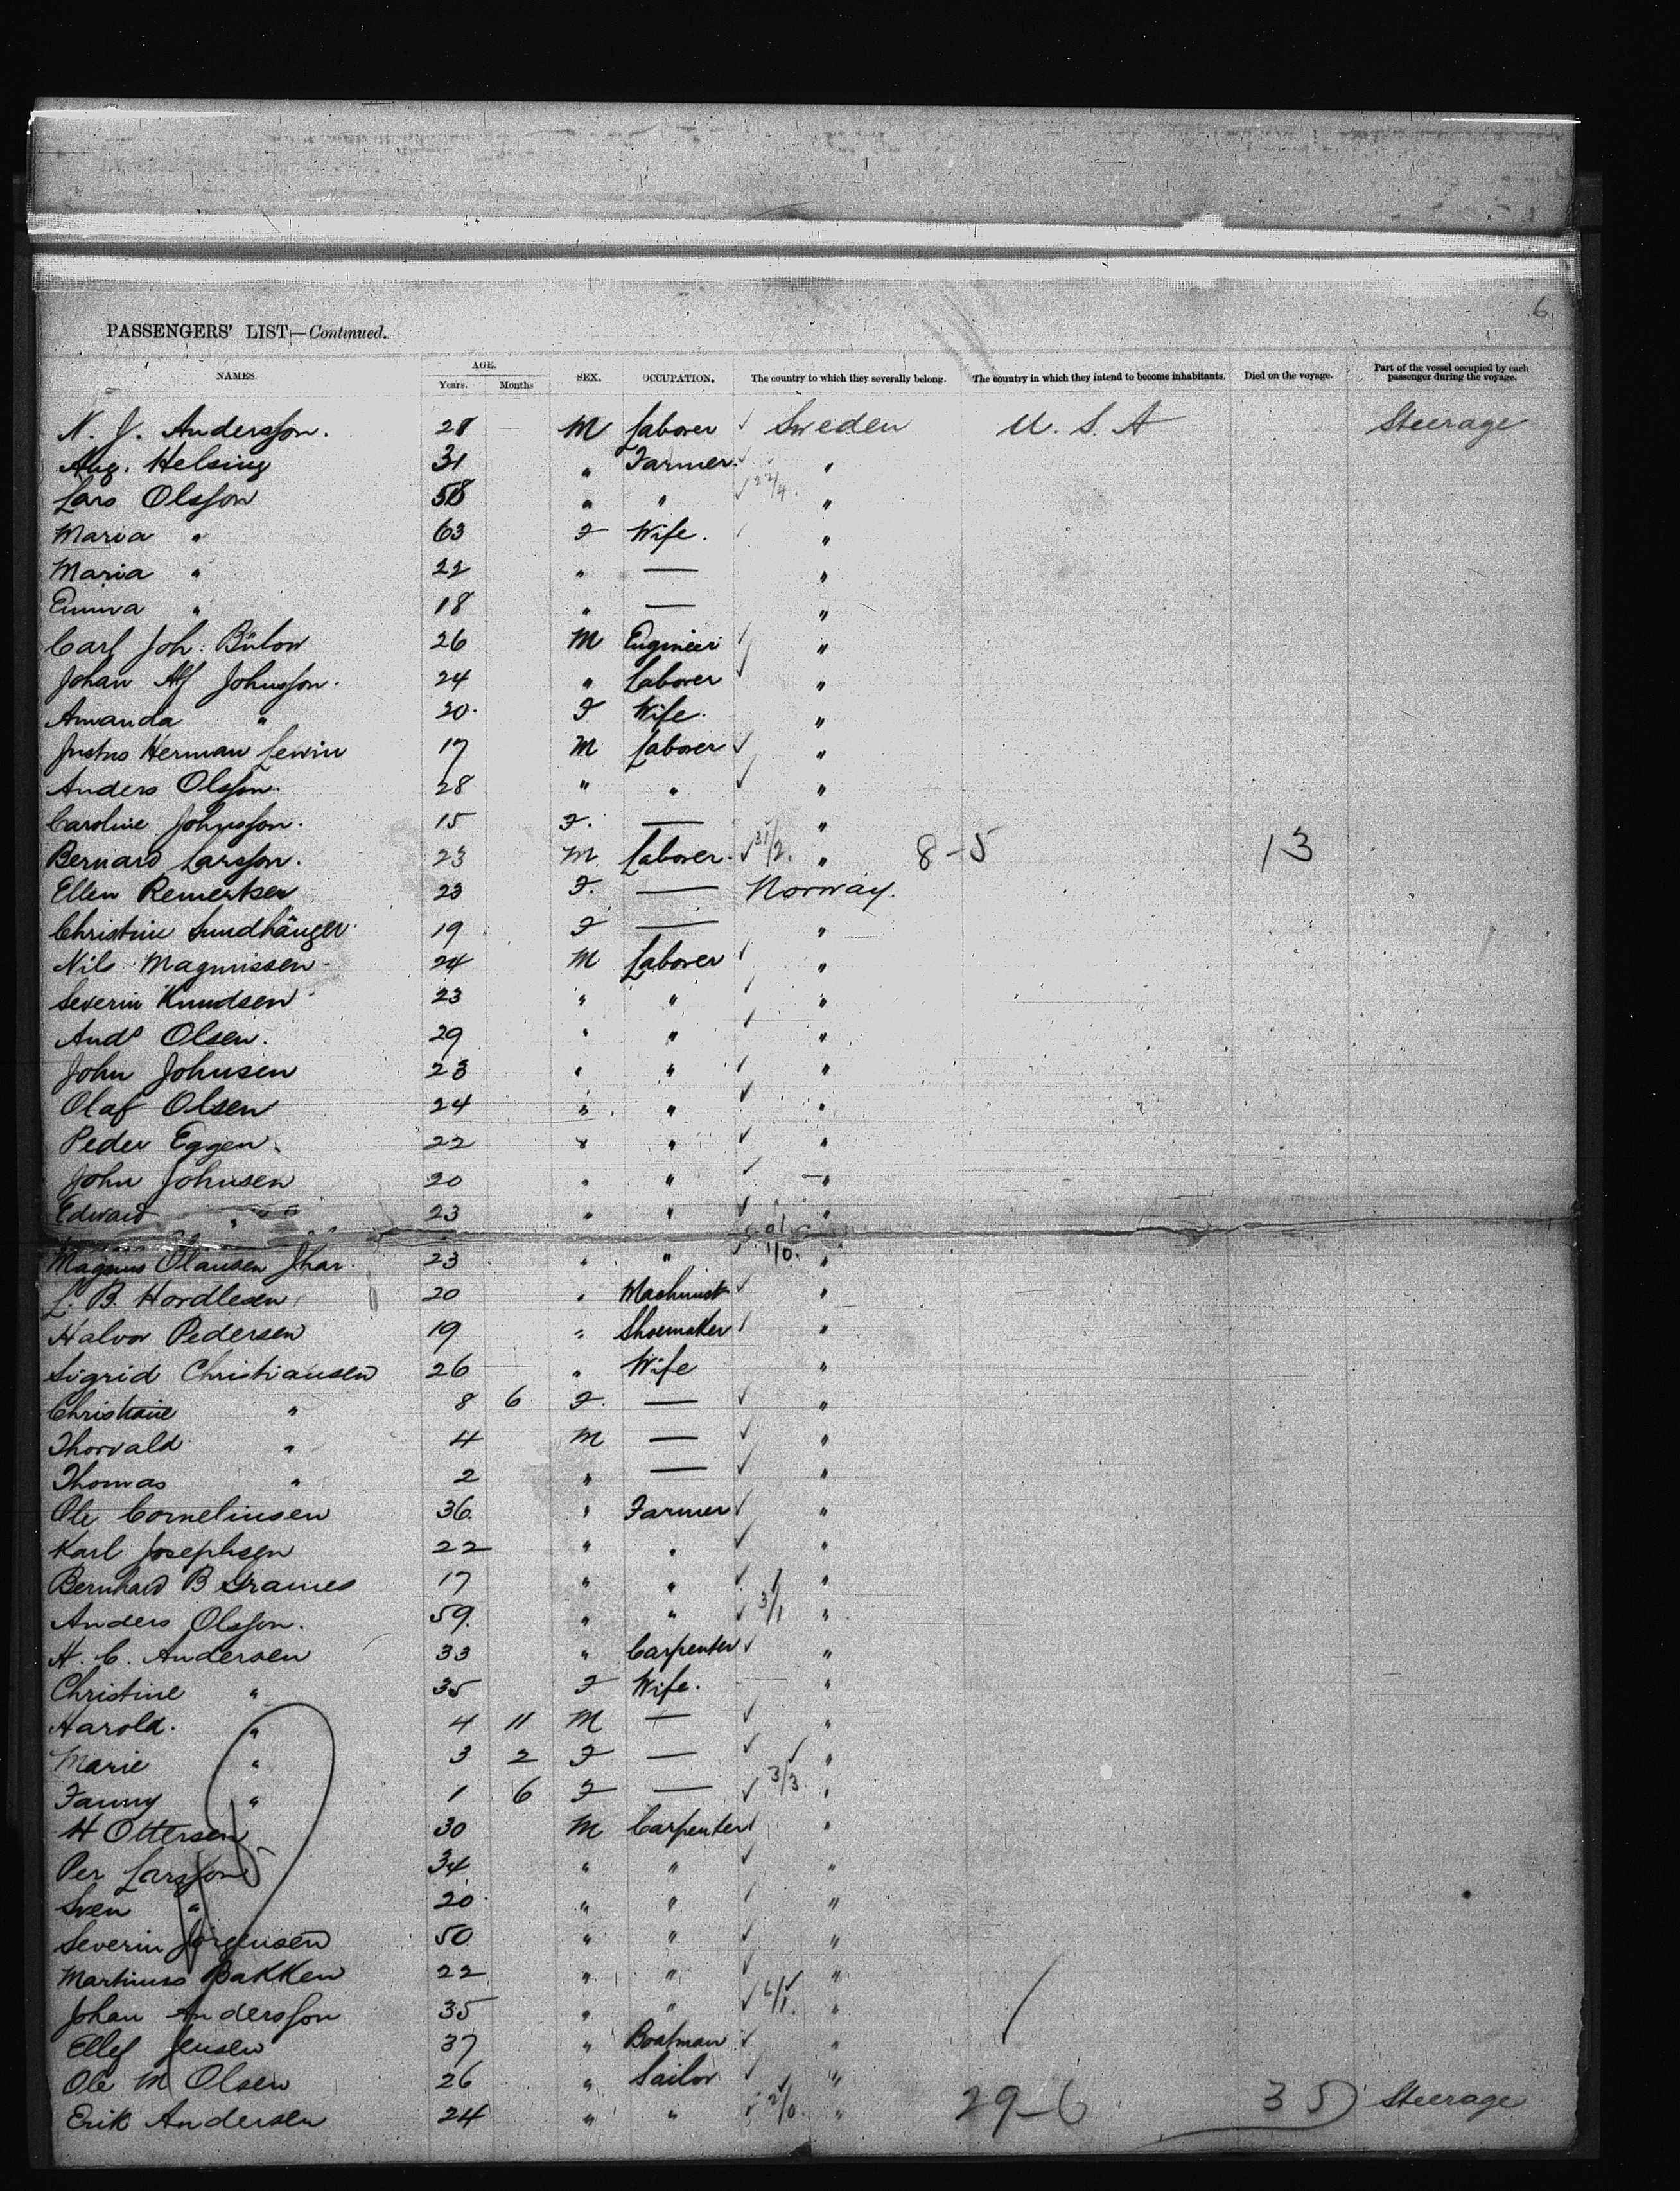 6
PASSENGERS' LIST—Continued.
NAMES. AGE. Years. Months SEX. OCCUPATION. The country to which they severally belong. The country in which they intend to become inhabitants. Died on the voyage. Part of the vessel occupied by each passenger during the voyage.
N. J. Andersson. 28 M Laborer ✓ Sweden U. S. A Steerage
Aug. Helsing 31 " Farmer ✓ "
Lars Olsson 58 " " ✓ 2/4 "
Maria " 63 F Wife. "
Maria " 22 " — "
Emma " 18 " — "
Carl Joh: Bülow 26 M Engineer ✓ "
Johan Alf Johnsson. 24 " Laborer ✓ "
Amanda " 20 F Wife. "
Justus Herman Lewin 17 M Laborer ✓ "
Anders Olsson. 28 " " ✓ "
Caroline Johnsson. 15 F. — "
Bernard Larsson. 23 M Laborer. ✓ 3/2. " 8-5 13
Ellen Remertsen 23 F. — Norway.
Christine Lundhänger 19 F — "
Nils Magnussen 24 M Laborer ✓ "
Severin Knudsen 23 " " ✓ "
Andˢ Olsen. 29 " " ✓ "
John Johnsen 23 " " ✓ "
Olaf Olsen 24 " " ✓ "
Peder Eggen 22 " " ✓ "
John Johnsen 20 " " ✓ "
Edward " 23 " " ✓ "
Magnus Olausen 23 " " ✓ "
L. B. Hordlesen 20 " Machinist ✓ "
Halvor Pedersen 19 " Shoemaker ✓ "
Sigrid Christiansen 26 " Wife "
Christiane " 8 6 F. — ✓ "
Thorvald " 4 M — ✓ "
Thomas " 2 " — ✓ "
Ole Corneliusen 36 " Farmer ✓ "
Karl Josephsen 22 " " ✓ "
Bernhard B 17 " " ✓ "
Anders Olsson. 59. " " ✓ 3/1 "
H. C. Andersen 33 " Carpenter ✓ "
Christine " 35 F Wife. "
Harold. " 4 11 M — ✓ "
Marie " 3 2 F — ✓ "
Fanny " 1 6 F — ✓ 3/3 "
H Ottersen 30 M Carpenter ✓ "
Per Larsson 34 " " ✓ "
Sven " 20 " " ✓ "
Severin Jörgensen 50 " " ✓ "
Martinus Bakken 22 " " ✓ "
Johan Andersson 35 " " ✓ 6/1. "
Ellef Jensen 37 " Boatman ✓ "
Ole M Olsen 26 " Sailor ✓ "
Erik Andersen 24 " " ✓ 2/0. " 29-6 35 Steerage